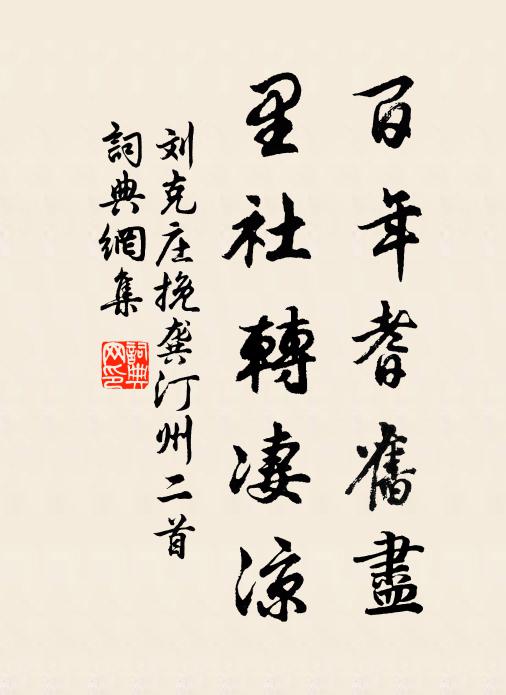 百年耆舊盡
里社轉凄涼
刘克庄挽龚汀州二首
詞典網集
詞典网印